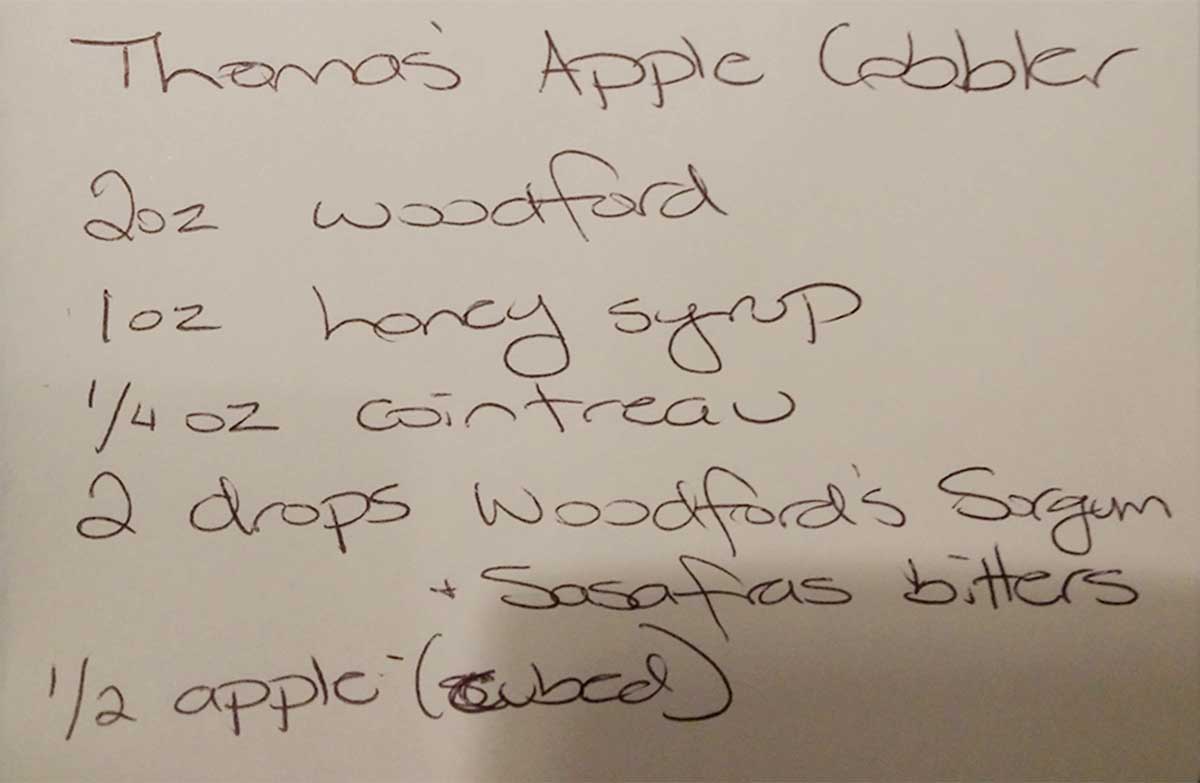 Thomas' Apple Cobbler
2oz woodford
1oz honey syrup
1/4 oz cointreau
2 drops Woodford's Sorgum
+ Sasafras bitters
1/2 apple - (cubed)